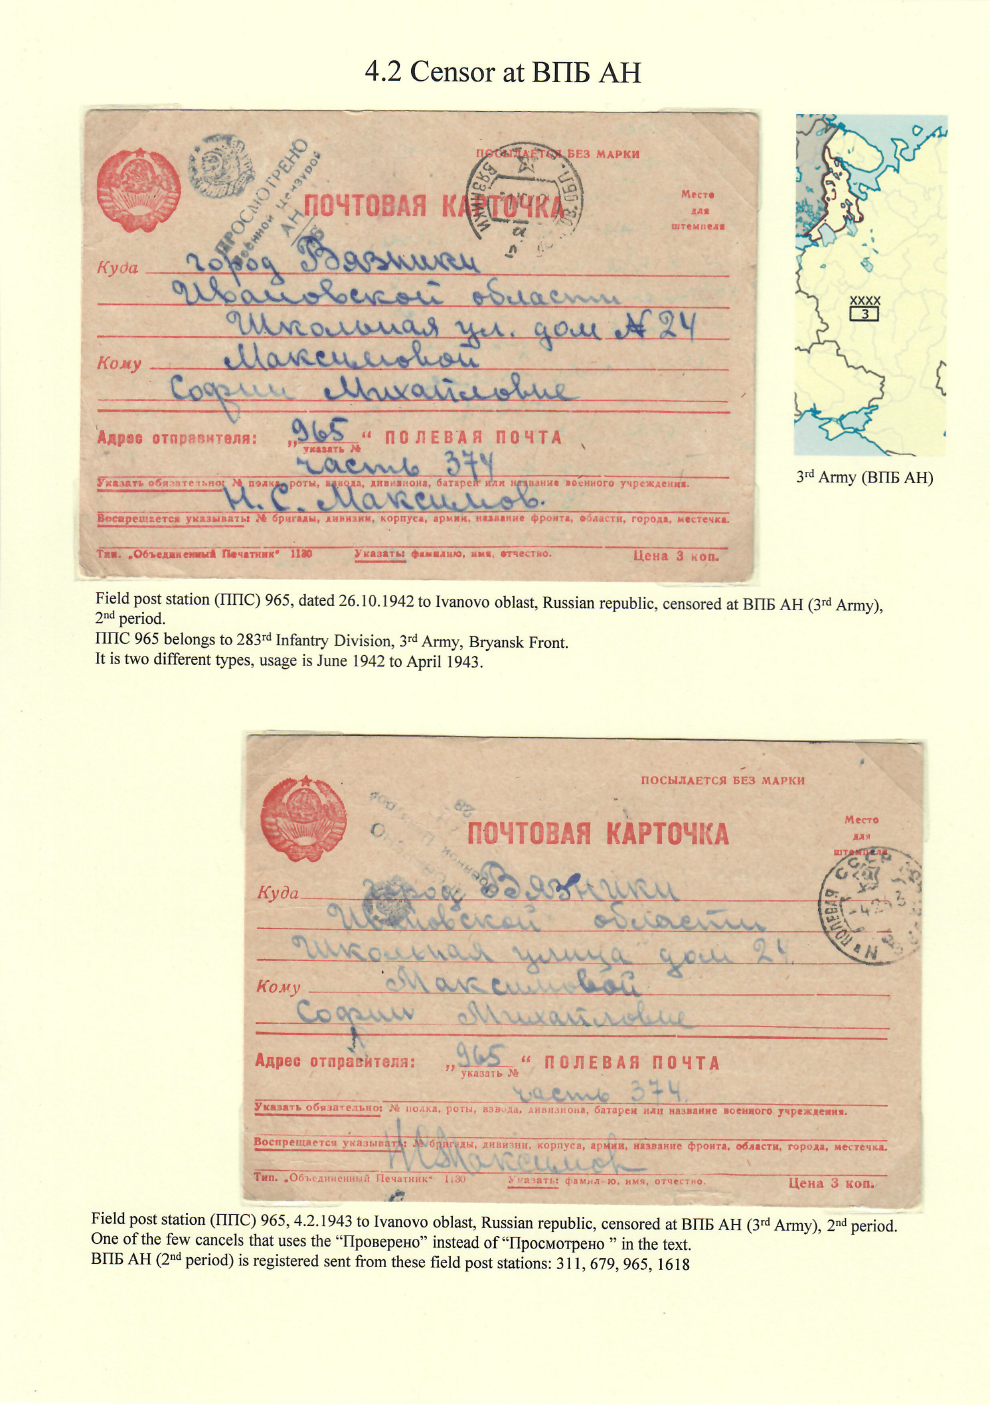 4.2 Censor at ВПБ АН
ПРОСМОТРЕНО
Военной Цензурой
АН
ПОСЫЛАЕТСЯ БЕЗ МАРКИ
ВЯЗНИКИ
ПОЧТОВАЯ КАРТОЧКА
Место
для
штемпеля
Куда город Вязники
Ивановской области
Школьная ул. дом № 24
Кому Максимовой
Софии Михайловне
Адрес отправителя: „965“ ПОЛЕВАЯ ПОЧТА
указать №
часть 374
Указать обязательно: № полка, роты, взвода, дивизиона, батареи или название военного учреждения.
Н. С. Максимов.
Воспрещается указывать: № бригады, дивизии, корпуса, армии, название фронта, области, города, местечка.
Тип. „Объединенный Печатник“ 1130 Указать: фамилию, имя, отчество. Цена 3 коп.
XXXX
3
3rd Army (ВПБ АН)
Field post station (ППС) 965, dated 26.10.1942 to Ivanovo oblast, Russian republic, censored at ВПБ АН (3rd Army),
2nd period.
ППС 965 belongs to 283rd Infantry Division, 3rd Army, Bryansk Front.
It is two different types, usage is June 1942 to April 1943.
ПОСЫЛАЕТСЯ БЕЗ МАРКИ
28
Военной
ПОЧТОВАЯ КАРТОЧКА
Место
для
штемпеля
СССР
ПОЛЕВАЯ
Куда город Вязники
Ивановской области
Школьная улица дом 24
Кому Максимовой
Софии Михайловне
Адрес отправителя: „965“ ПОЛЕВАЯ ПОЧТА
указать №
часть 374.
Указать обязательно: № полка, роты, взвода, дивизиона, батареи или название военного учреждения.
Воспрещается указывать: № бригады, дивизии, корпуса, армии, название фронта, области, города, местечка.
Н.С.Максимов
Тип. „Объединенный Печатник“ 1130 Указать: фамилию, имя, отчество. Цена 3 коп.
Field post station (ППС) 965, 4.2.1943 to Ivanovo oblast, Russian republic, censored at ВПБ АН (3rd Army), 2nd period.
One of the few cancels that uses the “Проверено” instead of “Просмотрено ” in the text.
ВПБ АН (2nd period) is registered sent from these field post stations: 311, 679, 965, 1618